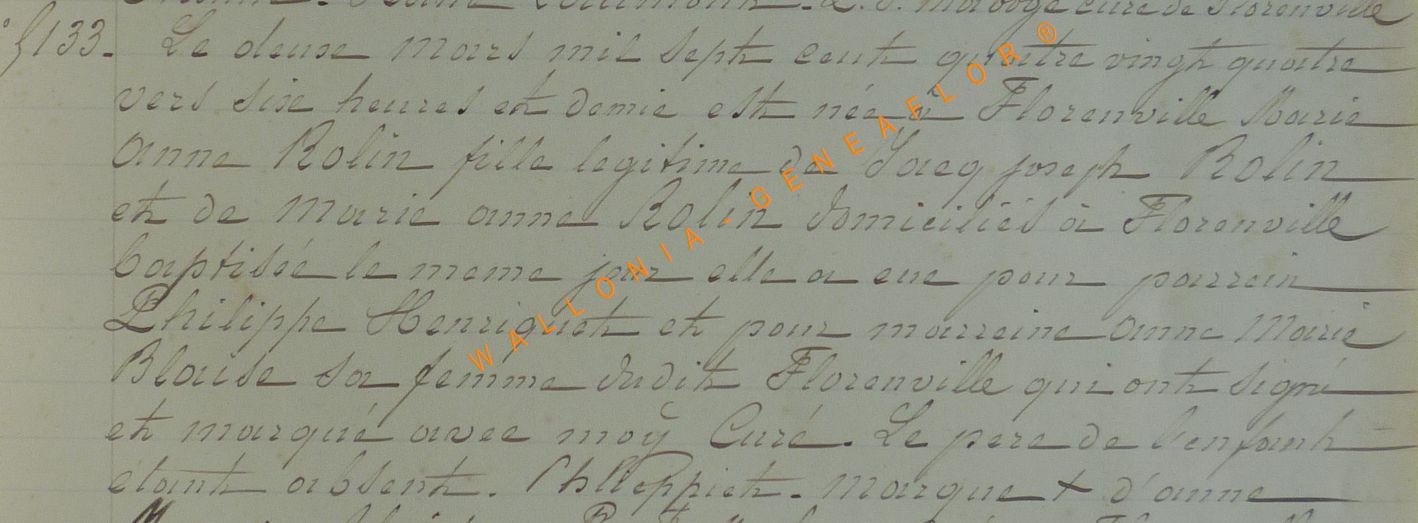 curé de Florenville
133. Le deuse Mars mil sept cent quatre vingt quatre
vers six heures et demie est née à Florenville Marie
anne Rolin fille legitime de Jacq joseph Rolin
et de Marie anne Rolin domiciliés à Florenville
baptisée le meme jour elle a eue pour parrein
Philippe Henriquet et pour marreine anne Marie
Blaise sa femme dudit Florenville qui ont signé
et marqué avec moÿ Curé. Le pere de l'enfant
étant absent. Marque + d'anne
WALLONIA - GENEAFLOR ®